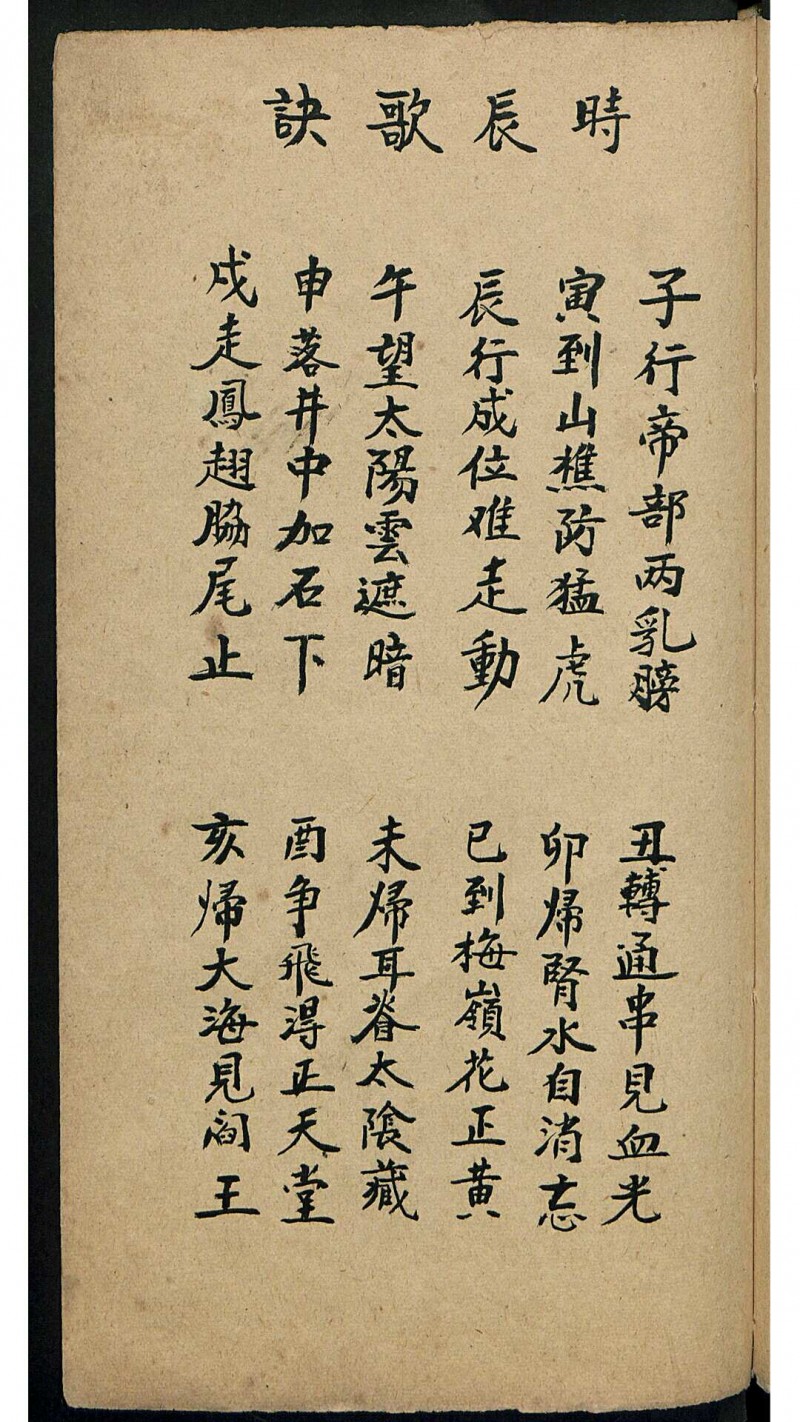 時辰歌訣
子行帝部两乳膀 丑轉通串見血光
寅到山樵防猛虎 卯帰腎水自消忘
辰行成位难走動 巳到梅嶺花正黄
午望太陽雲遮暗 未帰耳脊太陰藏
申落井中加石下 酉争飛得正天堂
戍走鳳翅脇尾止 亥帰大海見阎王